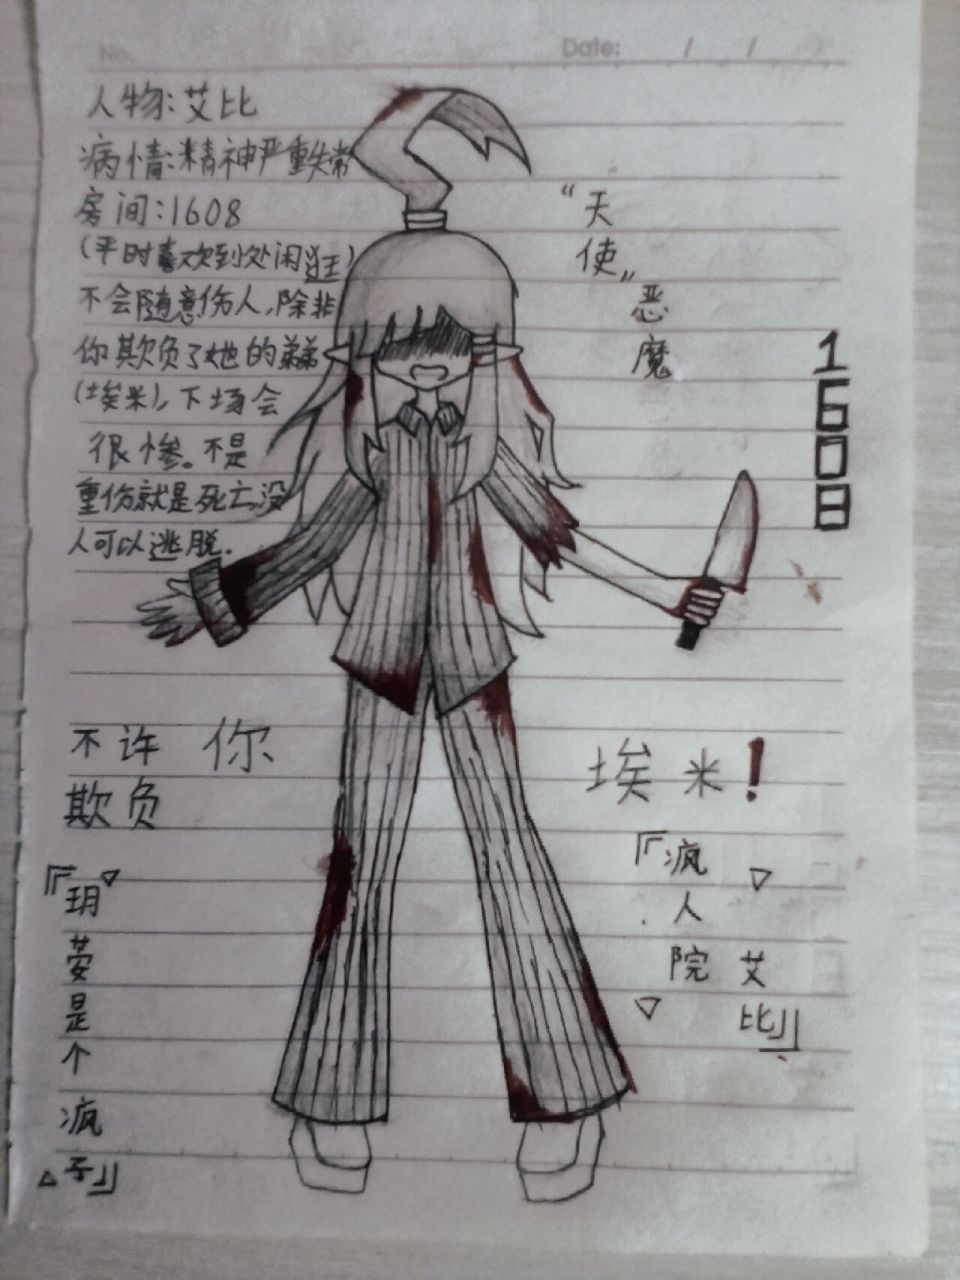 No.
Date: / /
人物:艾比
病情:精神严重失常
房间:1608
(平时喜欢到处闲逛)
不会随意伤人,除非
你欺负了她的弟弟
(埃米),下场会
很惨。不是
重伤就是死亡,没
人可以逃脱.
“天使”
恶魔
1608
不许你
欺负
埃米!
『玥
荌是个疯子』
『疯人院
艾比』